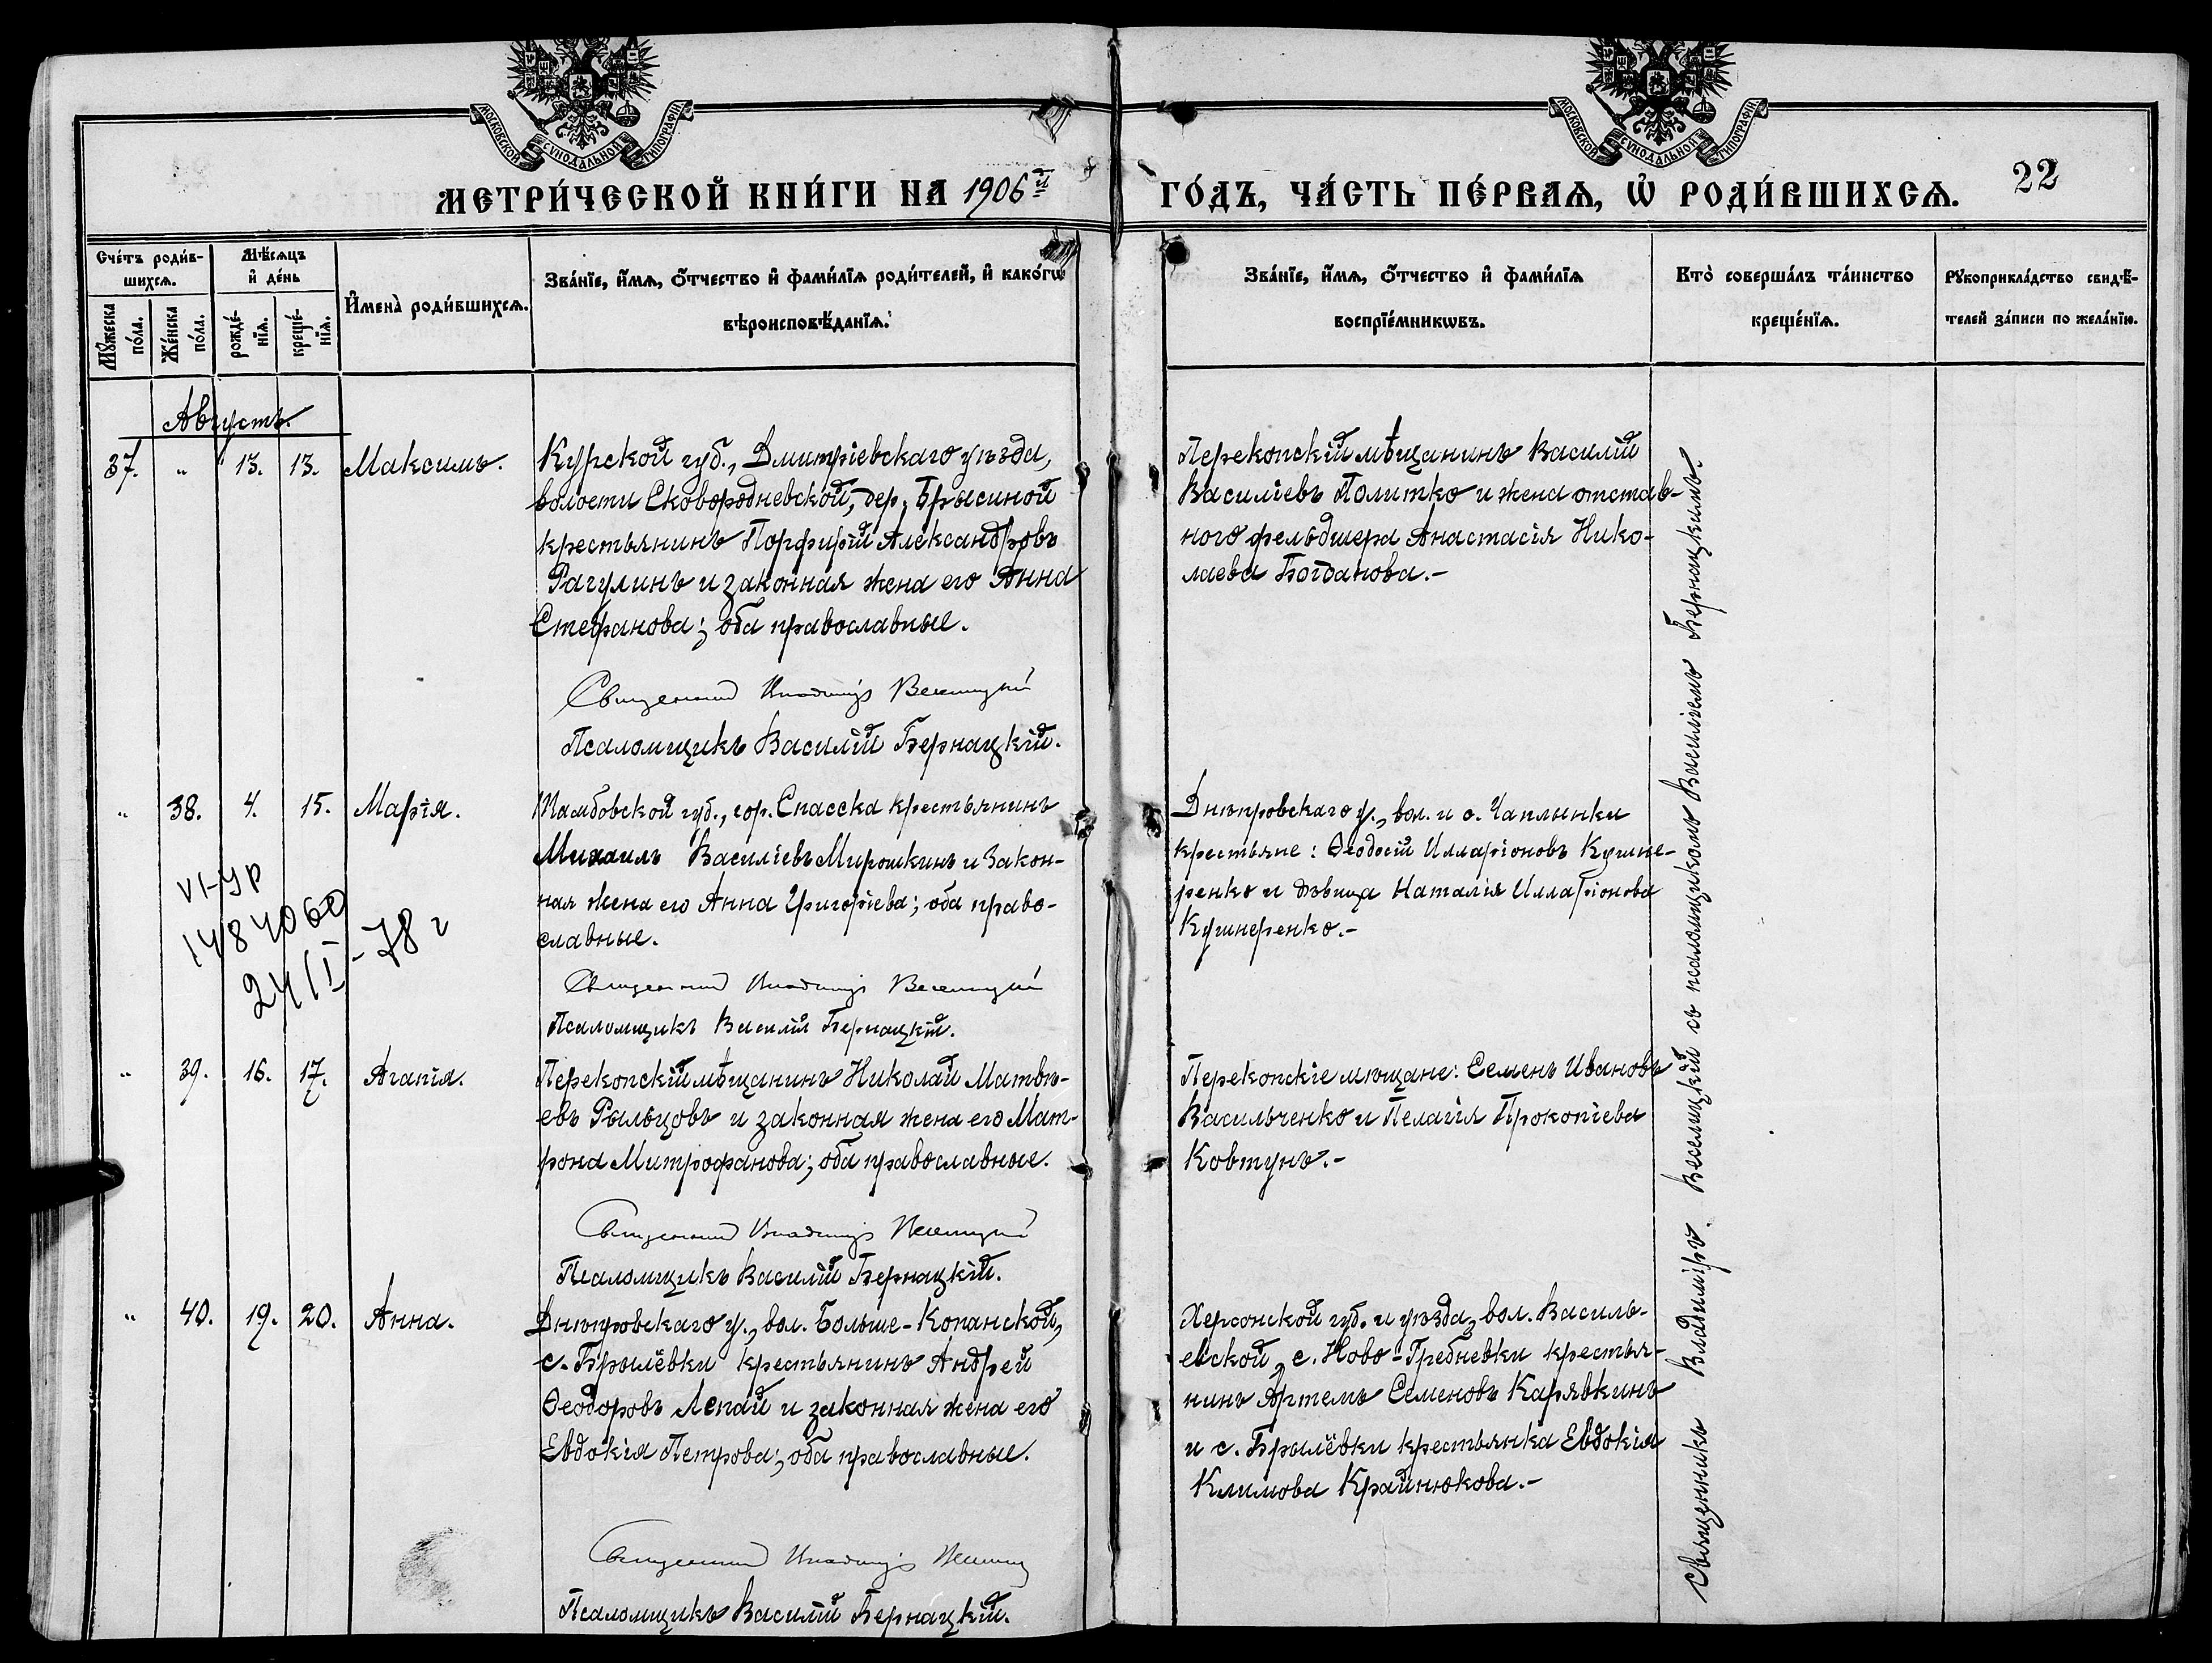 МОСКОВСКОЙ СУНОДАЛЬНОЙ ТИПОГРАФІИ
МОСКОВСКОЙ СУНОДАЛЬНОЙ ТИПОГРАФІИ
МЕТРИ́ЧЕСКОЙ КНИ́ГИ НА 1906й ГО́ДЪ, ЧА́СТЬ ПЕ́РВАѦ, Ѡ҆ РОДИ́ВШИХСѦ. 22
Сче́тъ роди́в-
шихсѧ.
Мꙋ́жеска по́ла.
Же́нска по́ла.
Мѣ́сѧцъ
и҆ де́нь
рожде́-
нїѧ.
креще́-
нїѧ.
И҆мена̀ роди́вшихсѧ.
Зва́нїе, и҆́мѧ, ѻ҆́тчество и҆ фами́лїѧ роди́телей, и҆ како́гѡ
вѣроисповѣ́данїѧ.
Зва́нїе, и҆́мѧ, ѻ҆́тчество и҆ фами́лїѧ
воспрїе́мникѡвъ.
Кто̀ соверша́лъ та́инство
креще́нїѧ.
Рꙋкоприкла́дство свидѣ́-
телей за́писи по жела́нїю.
Августъ.
37. " 13. 13. Максимъ.
Курской губ., Дмитріевскаго уѣзда,
волости Сковородневской, дер. Брысиной
крестьянинъ Порфирій Александровъ
Рагулинъ и законная жена его Анна
Стефанова; оба православные.
Священникъ Владиміръ Веселицкій
Псаломщикъ Василій Бернацкій.
Перекопскій мѣщанинъ Василій
Василіевъ Политко и жена отстав-
ного фельдшера Анастасія Нико-
лаева Богданова.-
" 38. 4. 15. Марія.
Тамбовской губ., гор. Спасска крестьянинъ
Михаилъ Василіевъ Мирошкинъ и закон-
ная жена его Анна Григоріева; оба право-
славные.
Священникъ Владиміръ Веселицкій
Псаломщикъ Василій Бернацкій.
Днѣпровскаго у., вол. и с. Чаплынки
крестьяне: Ѳеодосій Илларіоновъ Кушне-
ренко и дѣвица Наталія Илларіонова
Кушнеренко.-
VI-УР
1484060
24/I-78 г
" 39. 16. 17. Агапія.
Перекопскій мѣщанинъ Николай Матвѣ-
евъ Рыльцовъ и законная жена его Мат-
рона Митрофанова; оба православные.
Священникъ Владиміръ Веселицкій
Псаломщикъ Василій Бернацкій.
Перекопскіе мѣщане: Семенъ Ивановъ
Васильченко и Пелагія Прокопіева
Ковтунъ.-
" 40. 19. 20. Анна.
Днѣпровскаго у., вол. Больше-Копанской,
с. Брылёвки крестьянинъ Андрей
Ѳеодоровъ Лепай и законная жена его
Евдокія Петрова; оба православные.
Священникъ Владиміръ
Псаломщикъ Василій Бернацкій.
Херсонской губ. и уѣзда, вол. Василь-
евской, с. Ново-Гребневки крестья-
нинъ Артемъ Семеновъ Карявкинъ
и с. Брылёвки крестьянка Евдокія
Климова Крайнюкова.-
Священникъ Владиміръ Веселицкій съ псаломщикомъ Василіемъ Бернацкимъ.